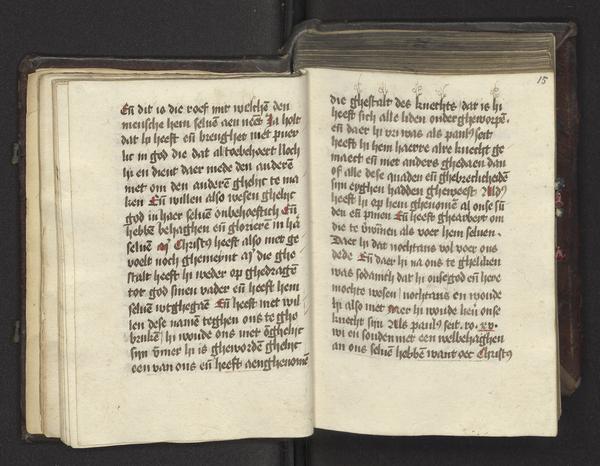 En̄ dit is die roef mit welchē den
mensche hem seluē aen nēet Ja holt
dat hi heeft en̄ brenghet met puer
lic in god die dat al toebehoert Noch
hi en dient daer mede den anderē
met om den anderē ghelijc te ma
ken En̄ willen also wesen ghelijc
god in haer seluē onbehoeflich En̄
hebbē behaghen en̄ glorierē in hā
seluē Christꝰ heeft also met ge
voelt noch ghemeint die ghe
stalt heeft hi weder op ghedragē
tot god sinen vader en̄ heeft hem
seluē wtghegaē En̄ heeft met wil
len dese namē teghen ons te ghe
brukē hi woude ons met ōghelijc
sijn hi is ghewordē ghelijc
een van ons en̄ heeft aenghenomē
15
die ghestalt des knechts dat is hi
heeft sich alle liden onder gheworpē
en̄ daer hi vri was als paulꝰ seit
heeft hi hem haerre alre knecht ge
maect en̄ met anders ghedaen dan
of alle dese quaden en̄ ghebrechlicheidē
sijn eyghen hadden gheweest Aldꝰ
heeft hi op hem ghenomē al onse sū
den en̄ pinen En̄ heeft ghearbeyt om
die te v̄winnē als voer hem seluen
Daer hi dat nochtans vol voer ons
dede En̄ daer hi na ons te ghelden
was sodanich dat hi onse god en̄ here
mochte wesen nochtans en woude
hi also met Mer hi woude hen̄ onse
knecht sijn Als paulꝰ seit. ro. xv.
wi en souden met een welbehaghen
an ons seluē hebbē want oec Christꝰ